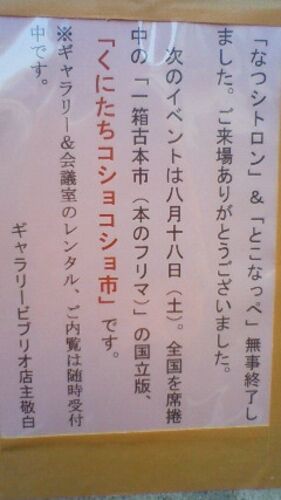 「なつシトロン」&「とこなっぺ」無事終了し
ました。ご来場ありがとうございました。
次のイベントは八月十八日（土）。全国を席捲
中の「一箱古本市（本のフリマ）」の国立版、
「くにたちコショコショ市」です。
※ギャラリー&会議室のレンタル、ご内覧は随時受付
中です。
ギャラリービブリオ店主敬白